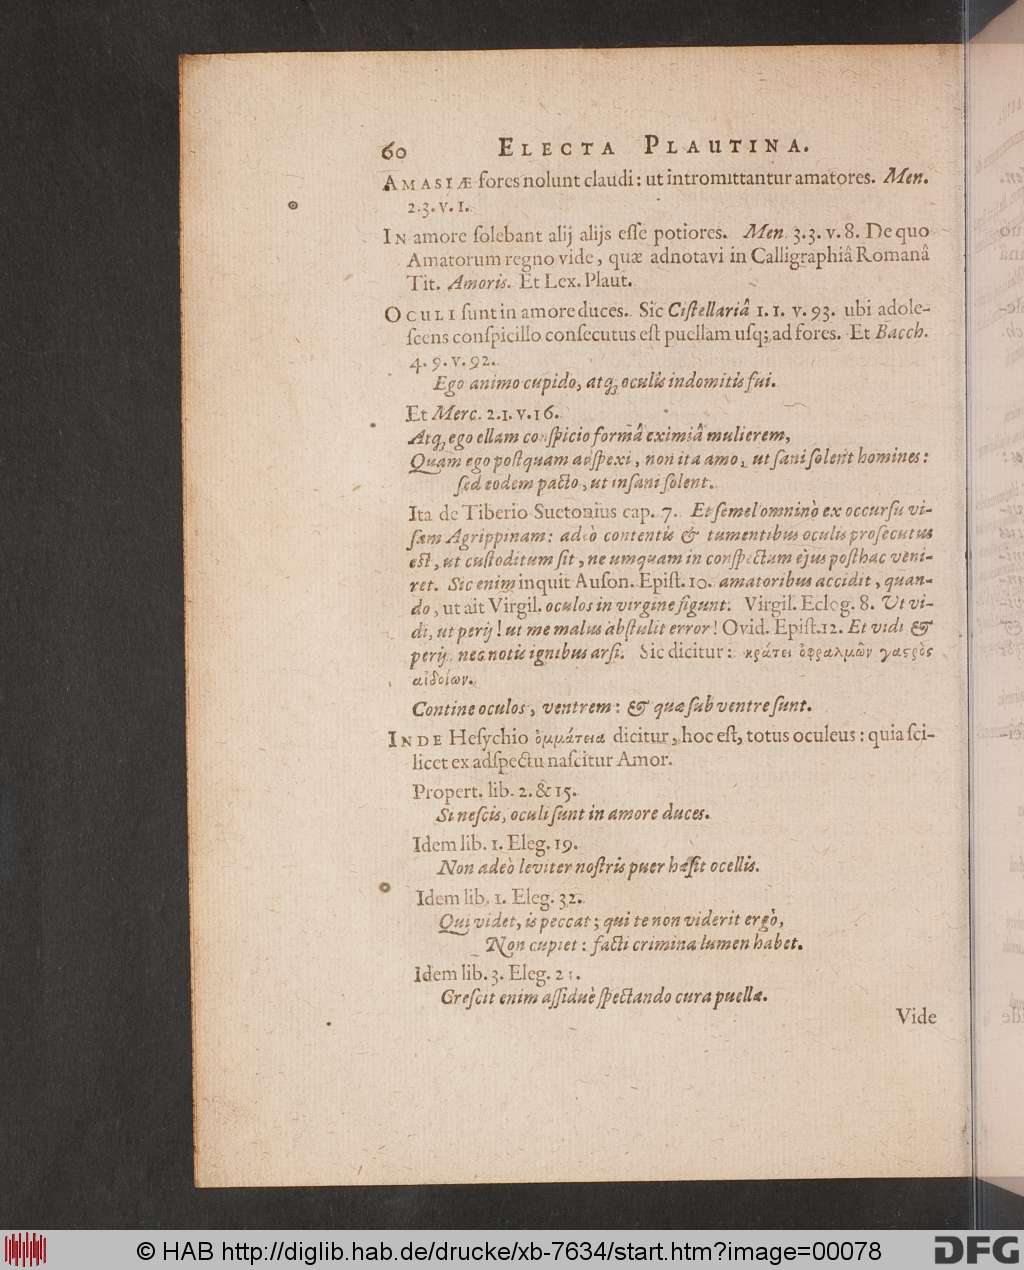 60 ELECTA PLAUTINA.
AMASIÆ fores nolunt claudi: ut intromittantur amatores. Men.
2.3. v. 1.
IN amore ſolebant alij alijs eſſe potiores. Men. 3.3. v. 8. De quo
Amatorum regno vide, quæ adnotavi in Calligraphiâ Romanâ
Tit. Amoris. Et Lex. Plaut.
OCULI ſunt in amore duces. Sic Ciſtellariâ 1.1. v. 93. ubi adole-
ſcens conſpicillo conſecutus eſt puellam uſq; ad fores. Et Bacch.
4. 9. v. 92.
Ego animo cupido, atq; oculis indomitis fui.
Et Merc. 2.1. v. 16.
Atq; ego ellam conſpicio formâ eximiâ mulierem,
Quam ego poſtquam adſpexi, non ita amo, ut ſani ſolent homines:
ſed eodem pacto, ut inſani ſolent.
Ita de Tiberio Suetonius cap. 7. Et ſemel omninò ex occurſu vi-
ſam Agrippinam: adeò contentis & tumentibus oculis proſecutus
eſt, ut cuſtoditum ſit, ne umquam in conſpectum ejus poſthac veni-
ret. Sic enim inquit Auſon. Epiſt. 10. amatoribus accidit, quan-
do, ut ait Virgil. oculos in virgine figunt. Virgil. Eclog. 8. Ut vi-
di, ut perij! ut me malus abſtulit error! Ovid. Epiſt. 12. Et vidi &
perij. nec notis ignibus arſi. Sic dicitur: κράτει ὀφραλμῶν γαςρὸς
αἰδοίων.
Contine oculos, ventrem: & quæ ſub ventre ſunt.
INDE Heſychio ὀμμάτεια dicitur, hoc eſt, totus oculeus: quia ſci-
licet ex adſpectu naſcitur Amor.
Propert. lib. 2. & 15.
Si neſcis, oculi ſunt in amore duces.
Idem lib. 1. Eleg. 19.
Non adeò leviter noſtris puer hæſit ocellis.
Idem lib. 1. Eleg. 32.
Qui videt, is peccat; qui te non viderit ergò,
Non cupiet: facti crimina lumen habet.
Idem lib. 3. Eleg. 21.
Creſcit enim aſſiduè ſpectando cura puellæ.
Vide
© HAB http://diglib.hab.de/drucke/xb-7634/start.htm?image=00078
DFG